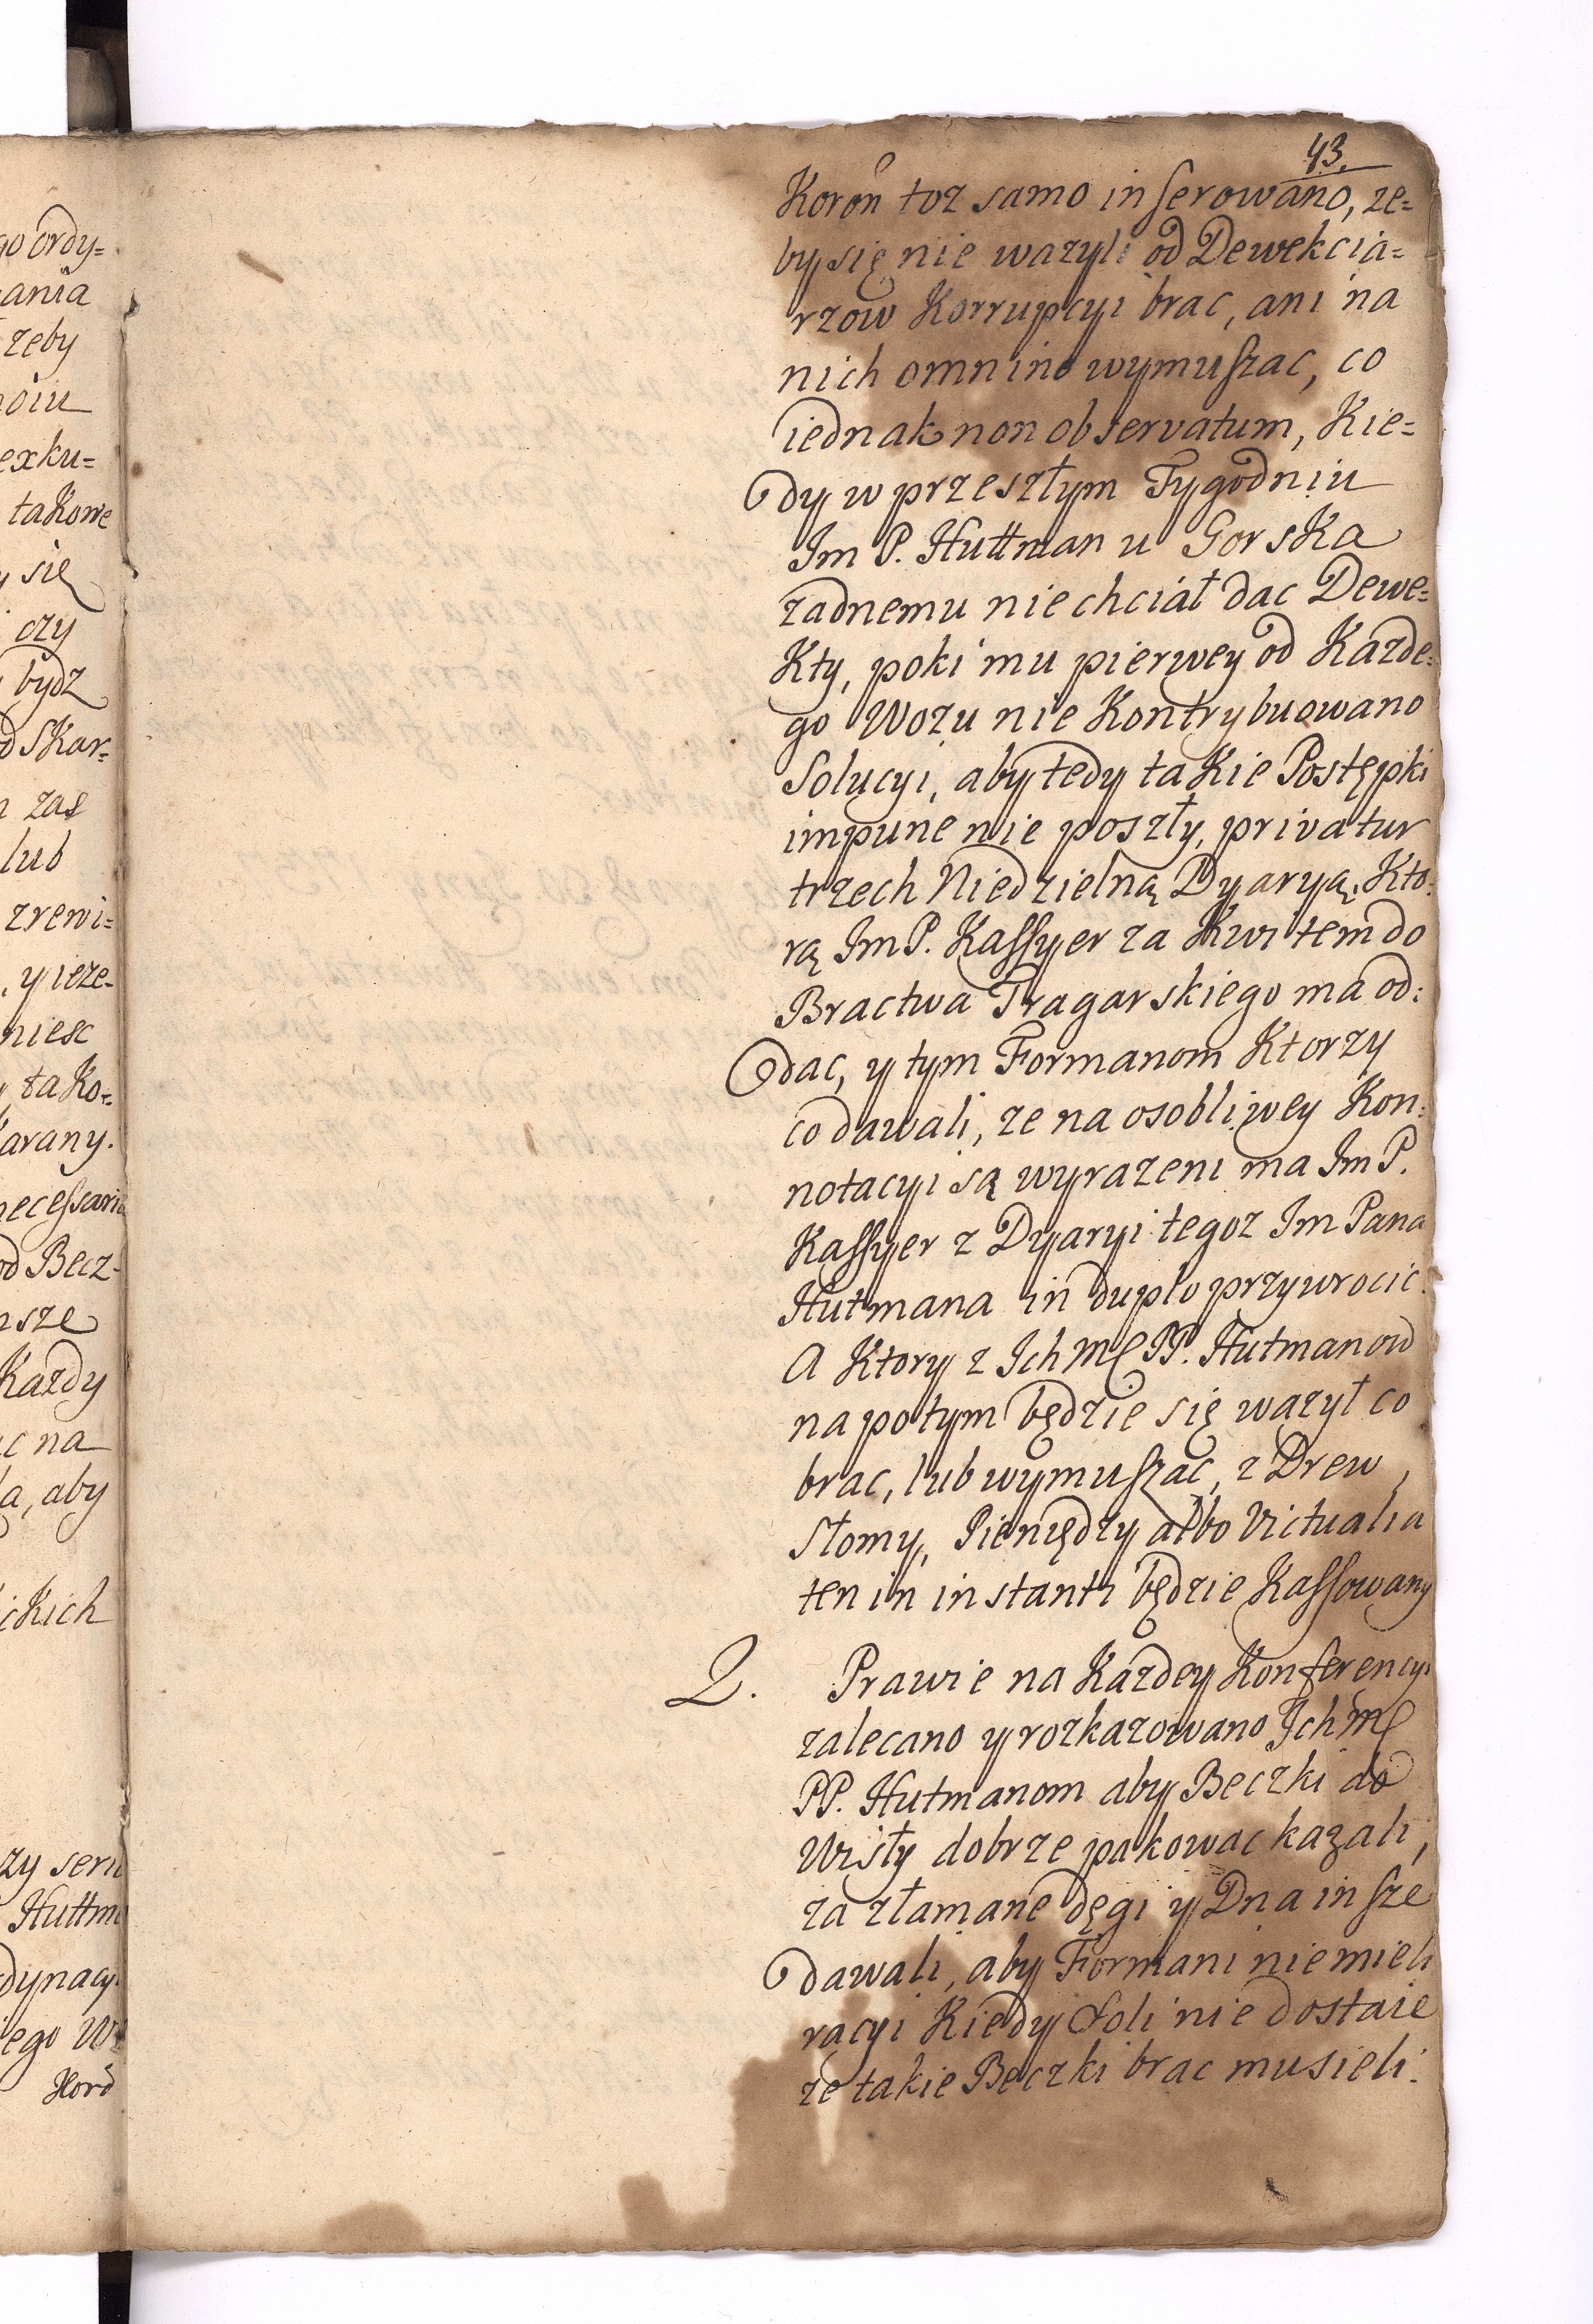 go ordy=
ania
zeby
exku=
takowe
się
ozy
bydz
d Skar=
zas
lub
zrewi=
, y ieze=
niesc
tako=
arany.
necessaria
od Becz=
nsze
Kazdy
c na
a, aby
ickich
zy seru
Huttm
dynacyi
iego W
Kord
43.
Koroñ toz samo inserowano, ze=
by się nie wazyli od Dewekcia=
rzow Korrupcyi brac, ani na
nich omnino wymuszac, co
iednak non observatum, Kie=
dy w przeszłym Tygodniu
Im P. Huttman u Gorska
zadnemu nie chciáł dac Dewe=
Kty, poki mu pierwey od Kazde=
go Wozu nie Kontrybuowano
Solucyi, aby tedy takie Postępki
impune nie poszły, privatur
trzech Niedzielną Dyaryą, Kto=
rą Im P. Kassyer za Kwitem do
Bractwa Tragarskiego ma od=
dac, y tym Formanom Ktorzy
co dawali, ze na osobliwey Kon=
notacyi są wyrazeni ma Im P.
Kassyer z Dyaryi tegoz Im Pana
Hutmana in duplo przywrocic.
A Ktory z Ich M PP. Hutmanow
na potym będzie się wazył co
brac, lub wymuszac, z Drew,
Słomy, Pieniędzy albo Victualia
ten in instanti będzie Kassowany
2. Prawie na Kazdey Konferencyi
zalecano y rozkazowano Ich M
PP. Hutmanom aby Beczki do
Wisły dobrze pakowac kazali,
za złamane dęgi y Dna insze
dawali, aby Formani nie mieli
racyi Kiedy Soli nie dostaie
ze takie Beczki brac musieli.